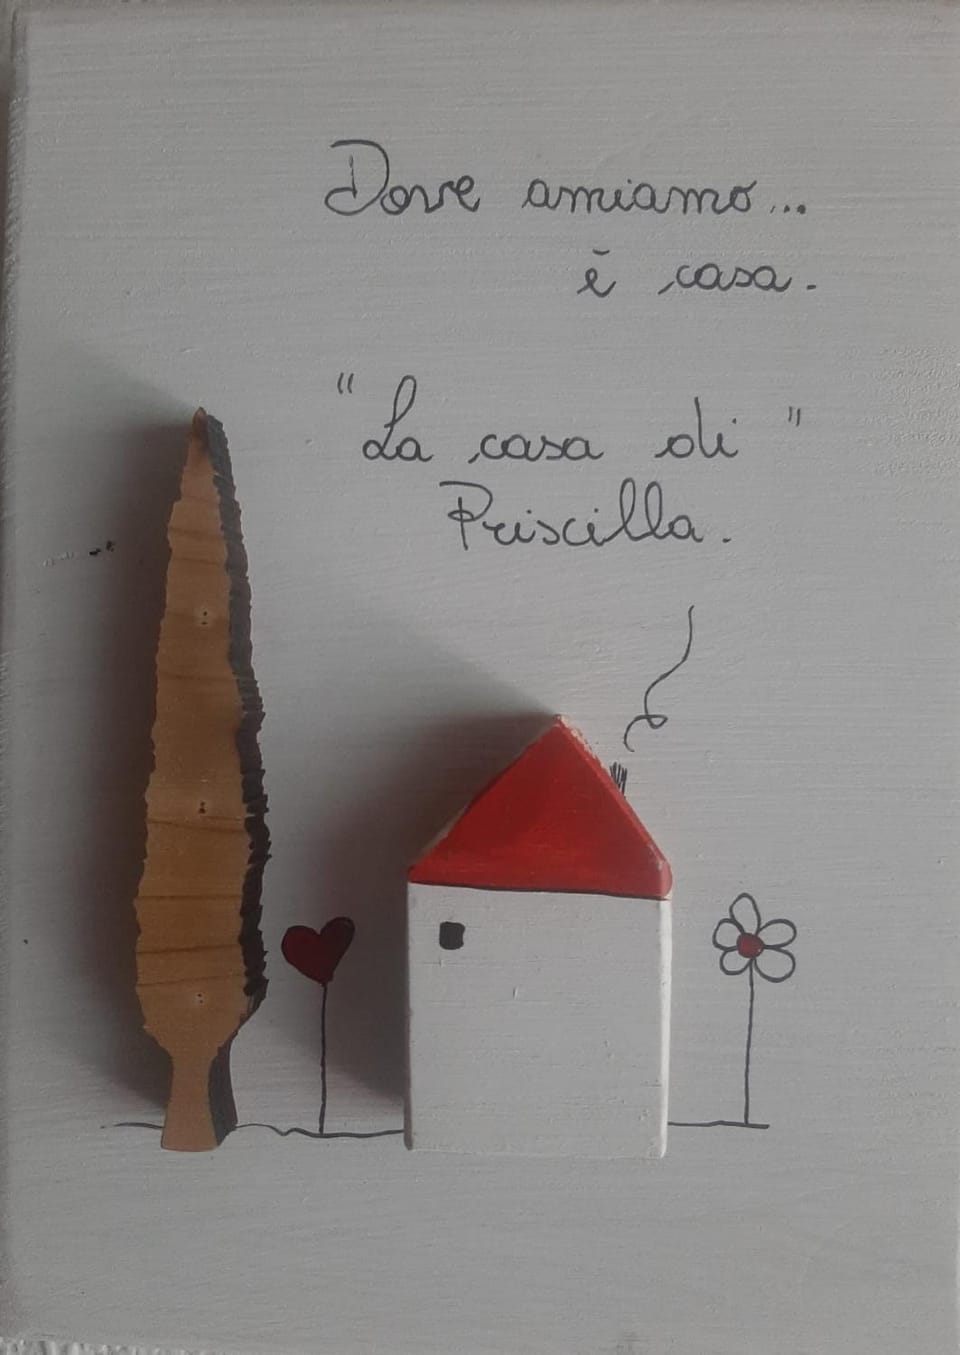 Dove amiamo...
è casa.
"La casa di"
Priscilla.